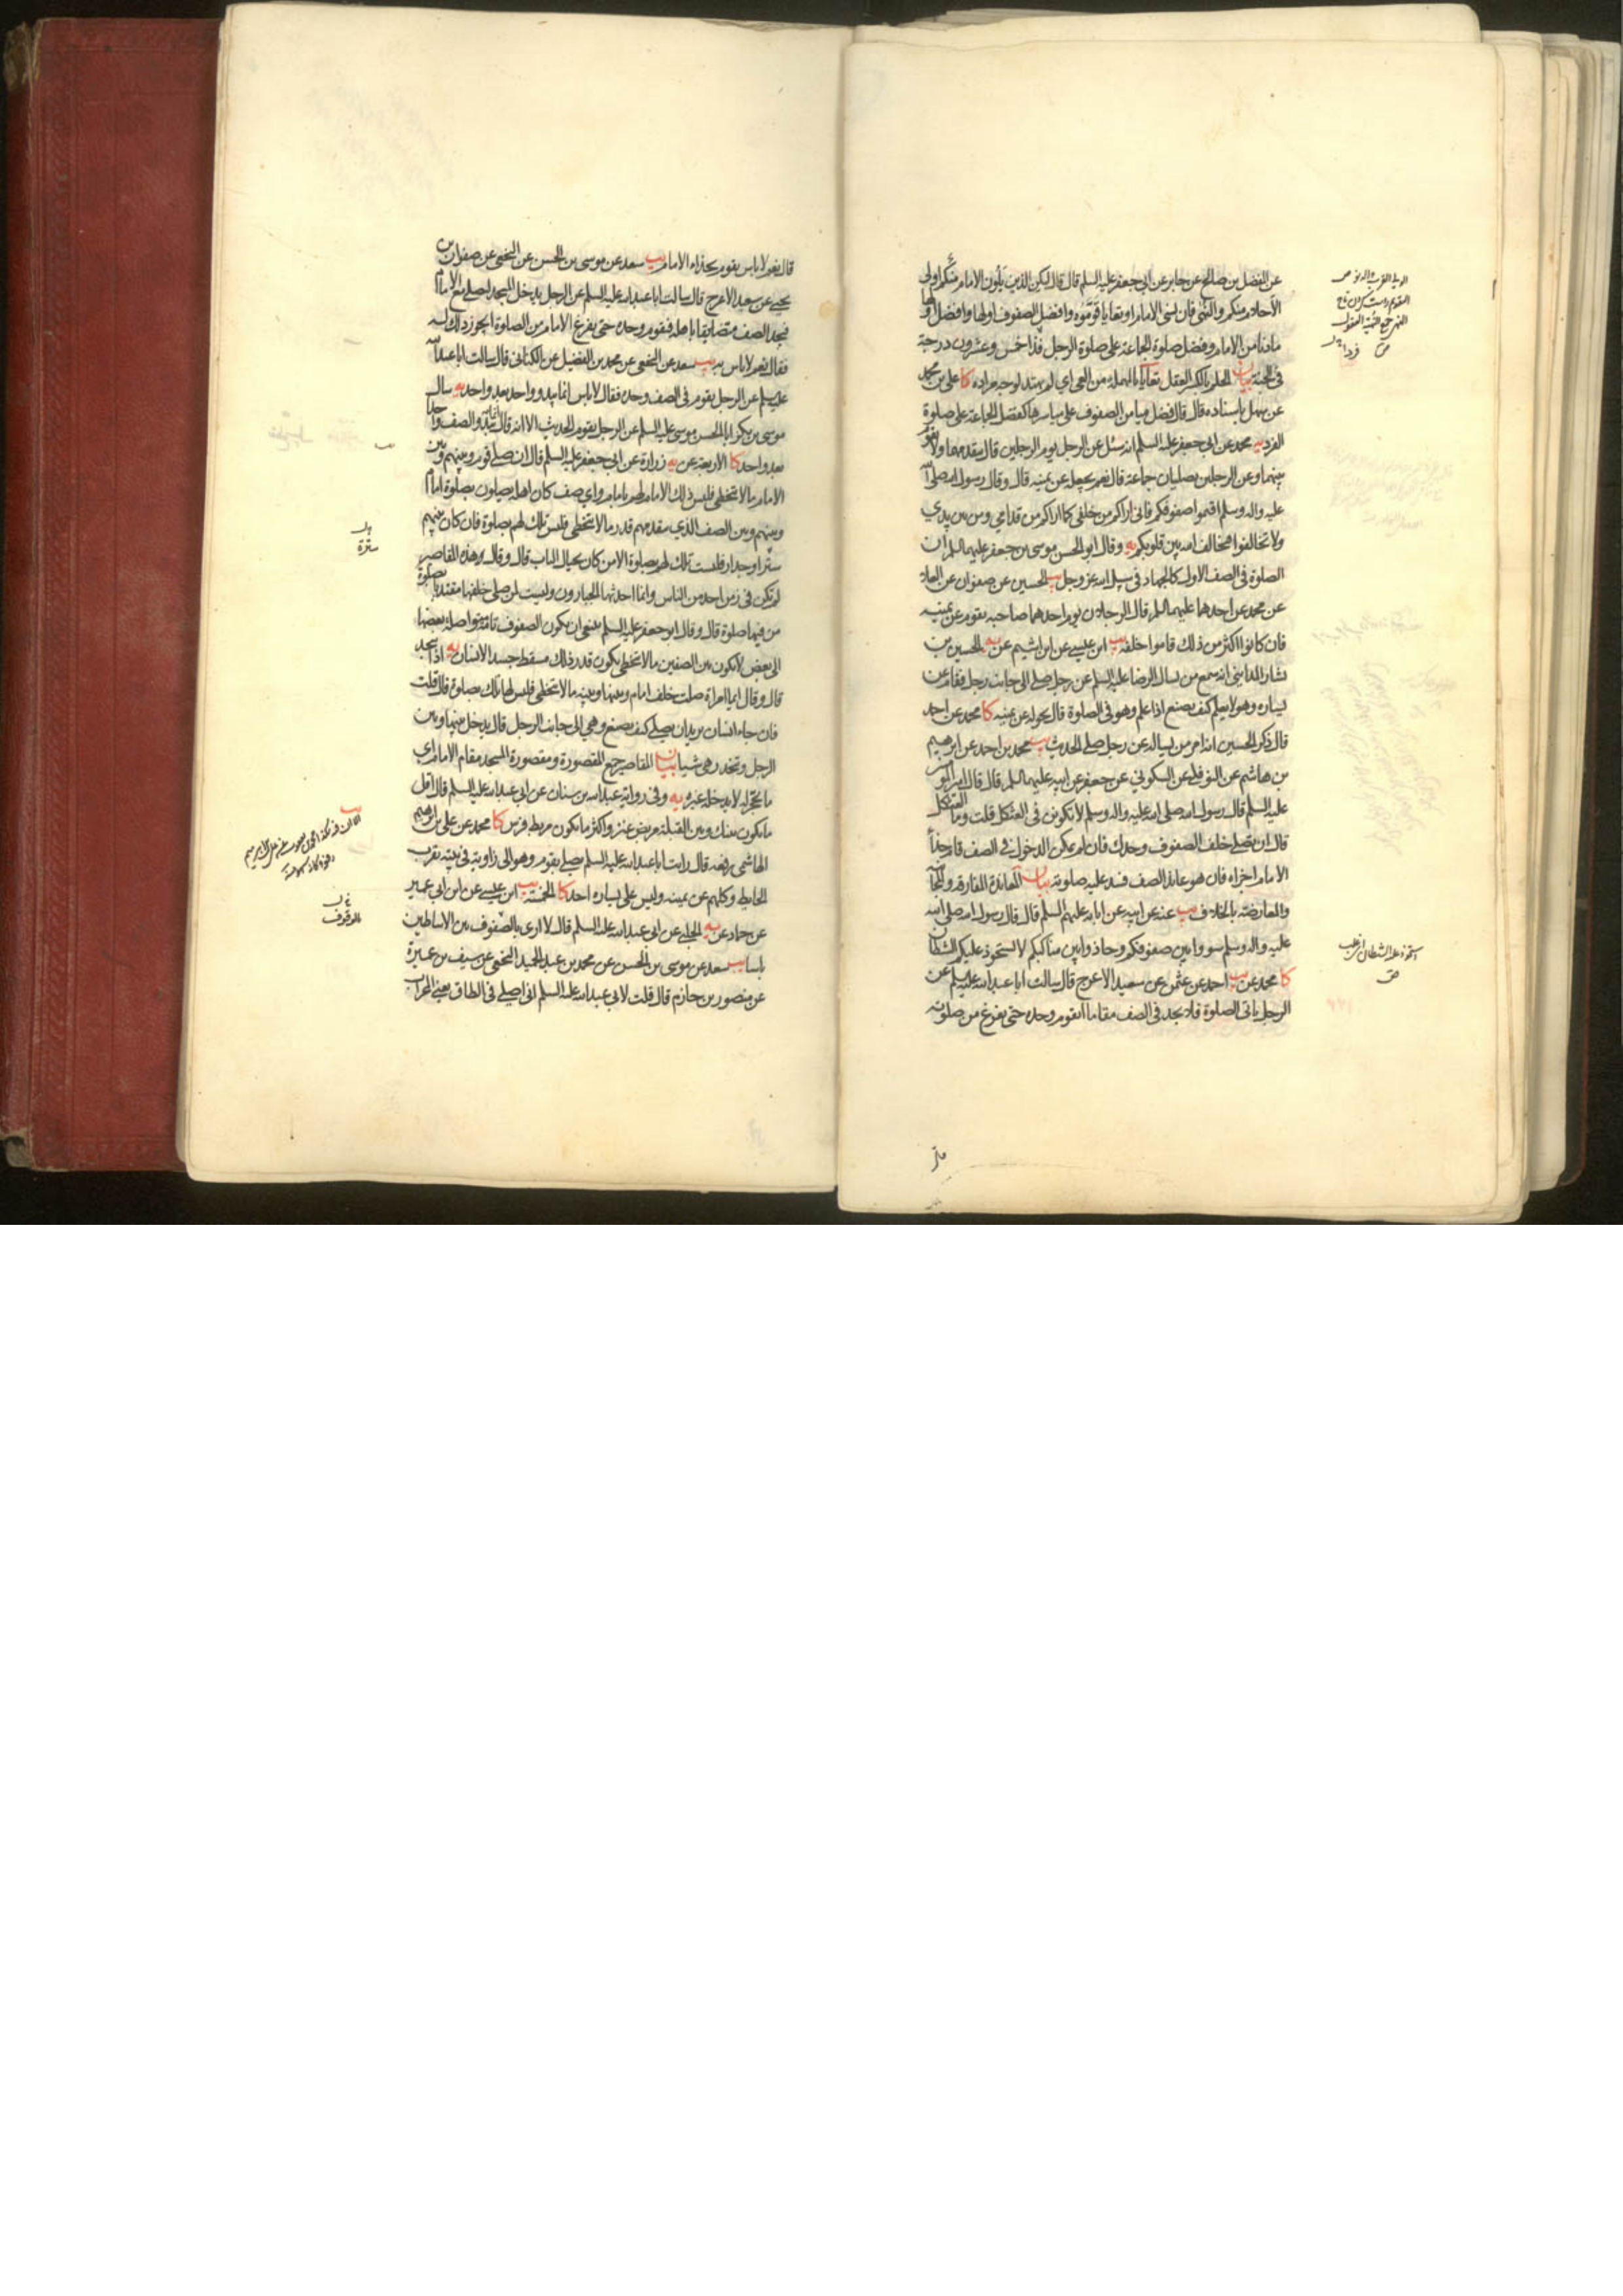 عن المفضل بن صالح عن جابر عن ابي جعفر عليه السلم قال قال ليكن الذين يلون الامام منكم اولي
الاحلام منكم والنهى فان نسي الامام او تعايا قوموه وافضل الصفوف اولها وافضل اولها
مادنا من الامام وفضل صلوة الجماعة على صلوة الرجل فذا خمس وعشرون درجة
في الجنة بيان الحلم بالكسر العقل تعايا بالمهملة من العي اي لم يهتد لوجه مراده كا علي بن محمد
عن سهل باسناده قال قال فضل ميامن الصفوف على مياسرها كفضل الجماعة على صلوة
الفرد يه محمد عن ابي جعفر عليه السلم انه سئل عن الرجل يؤم الرجلين قال يتقدمهما ولا يقوم
بينهما وعن الرجلين يصليان جماعة قال نعم يجعله عن يمينه قال وقال رسول الله صلى الله
عليه واله وسلم اقيموا صفوفكم فاني اراكم من خلفي كما اراكم من قدامي ومن بين يدي
ولا تخالفوا فيخالف الله بين قلوبكم يه وقال ابو الحسن موسى بن جعفر عليهما السلم ان
الصلوة في الصف الاول كالجهاد في سبيل الله عز وجل يب الحسين عن صفوان عن العلا
عن محمد عن احدهما عليهما السلم قال الرجلان يؤم احدهما صاحبه يقوم عن يمينه
فان كانوا اكثر من ذلك قاموا خلفه يب ابن عيسى عن ابن اشيم عن يه الحسين بن
يشار المدايني انه سمع من يسال الرضا عليه السلم عن رجل صلى الى جانب رجل فقام عن
يساره وهو لا يعلم كيف يصنع اذا علم وهو في الصلوة قال يحوله عن يمينه كا محمد عن احمد
قال ذكر الحسين انه امر من يساله عن رجل صلى الحديث يب محمد بن احمد عن ابرهيم
بن هاشم عن النوفلي عن السكوني عن جعفر عن ابيه عليهما السلم قال قال امير المؤمنين
عليه السلم قال رسول الله صلى الله عليه واله وسلم لا تكونن في العثكل قلت وما العثكل
قال ان تصلي خلف الصفوف وحدك فان لم يمكن الدخول في الصف قام حذاء
الامام اجزاه فان هو عاند الصف فسد عليه صلوته بيان المعاندة المفارقة والمجانبة
والمعارضة بالخلاف يب عنه عن ابيه عن ابائه عليهم السلم قال قال رسول الله صلى الله
عليه واله وسلم سووا بين صفوفكم وحاذوا بين مناكبكم لا يستحوذ عليكم الشيطان
كا محمد عن يب احمد عن عثمن عن سعيد الاعرج قال سالت ابا عبدالله عليه السلم عن
الرجل ياتي الصلوة فلا يجد في الصف مقاما ايقوم وحده حتى يفرغ من صلوته
استحوذ عليه الشيطان اي غلب
قال نعم لا باس يقوم بحذاء الامام يب سعد عن موسى بن الحسن عن النخعي عن صفوان بن
يحيى عن سعيد الاعرج قال سالت ابا عبدالله عليه السلم عن الرجل يدخل المسجد ليصلي مع الامام
فيجد الصف متضايقا باهله فيقوم وحده حتى يفرغ الامام من الصلوة ايجوز ذلك له
فقال نعم لا باس به يب سعد عن النخعي عن محمد بن الفضيل عن الكناني قال سالت ابا عبدالله
عليه السلم عن الرجل يقوم في الصف وحده فقال لا باس انما يبدو واحد بعد واحد يه سال
موسى بن بكر ابا الحسن موسى عليه السلم عن الرجل يقوم الحديث الا انه قال يبدو الصف واحدا
بعد واحد كا الاربعة عن يه زرارة عن ابي جعفر عليه السلم قال ان صلى قوم وبينهم وبين
الامام ما لا يتخطى فليس ذلك الامام لهم بامام واي صف كان اهله يصلون بصلوة امام
وبينهم وبين الصف الذي يتقدمهم قدر ما لا يتخطى فليس تلك لهم بصلوة فان كان بينهم
ستر او جدار فليست تلك لهم بصلوة الا من كان بحيال الباب قال وقال وهذه المقاصير
لم تكن في زمن احد من الناس وانما احدثها الجبارون وليست لمن صلى خلفها مقتديا بصلوة
من فيها صلوة قال وقال ابو جعفر عليه السلم ينبغي ان يكون الصفوف تامة متواصلة بعضها
الى بعض لا يكون بين الصفين ما لا يتخطى يكون قدر ذلك مسقط جسد الانسان يه اذا سجد
قال وقال ايما امراة صلت خلف امام وبينها وبينه ما لا يتخطى فليس لها تلك بصلوة قال قلت
فان جاء انسان يريد ان يصلي كيف يصنع وهي الى جانب الرجل قال يدخل بينها وبين
الرجل وتنحدر هي شيئا بيان المقاصير جمع المقصورة ومقصورة المسجد مقام الامام اي
ما يحجر له لا يدخله غيره يه وفي رواية عبدالله بن سنان عن ابي عبدالله عليه السلم قال اقل
ما يكون بينك وبين القبلة مربض عنز واكثر ما يكون مربط فرس كا محمد عن علي بن ابرهيم
الهاشمي رفعه قال رايت ابا عبدالله عليه السلم يصلي بقوم وهو الى زاوية في بيته بقرب
الحايط وكلهم عن يمينه وليس على يساره احد كا الخمسة يب ابن عيسى عن ابن ابي عمير
عن حماد عن يه الحلبي عن ابي عبدالله عليه السلم قال لا ارى بالصفوف بين الاساطين
باسا يب سعد عن موسى بن الحسن عن محمد بن عبد الحميد النخعي عن سيف بن عميرة
عن منصور بن حازم قال قلت لابي عبدالله عليه السلم اني اصلي في الطاق يعني المحراب
سترة
بالوقوف